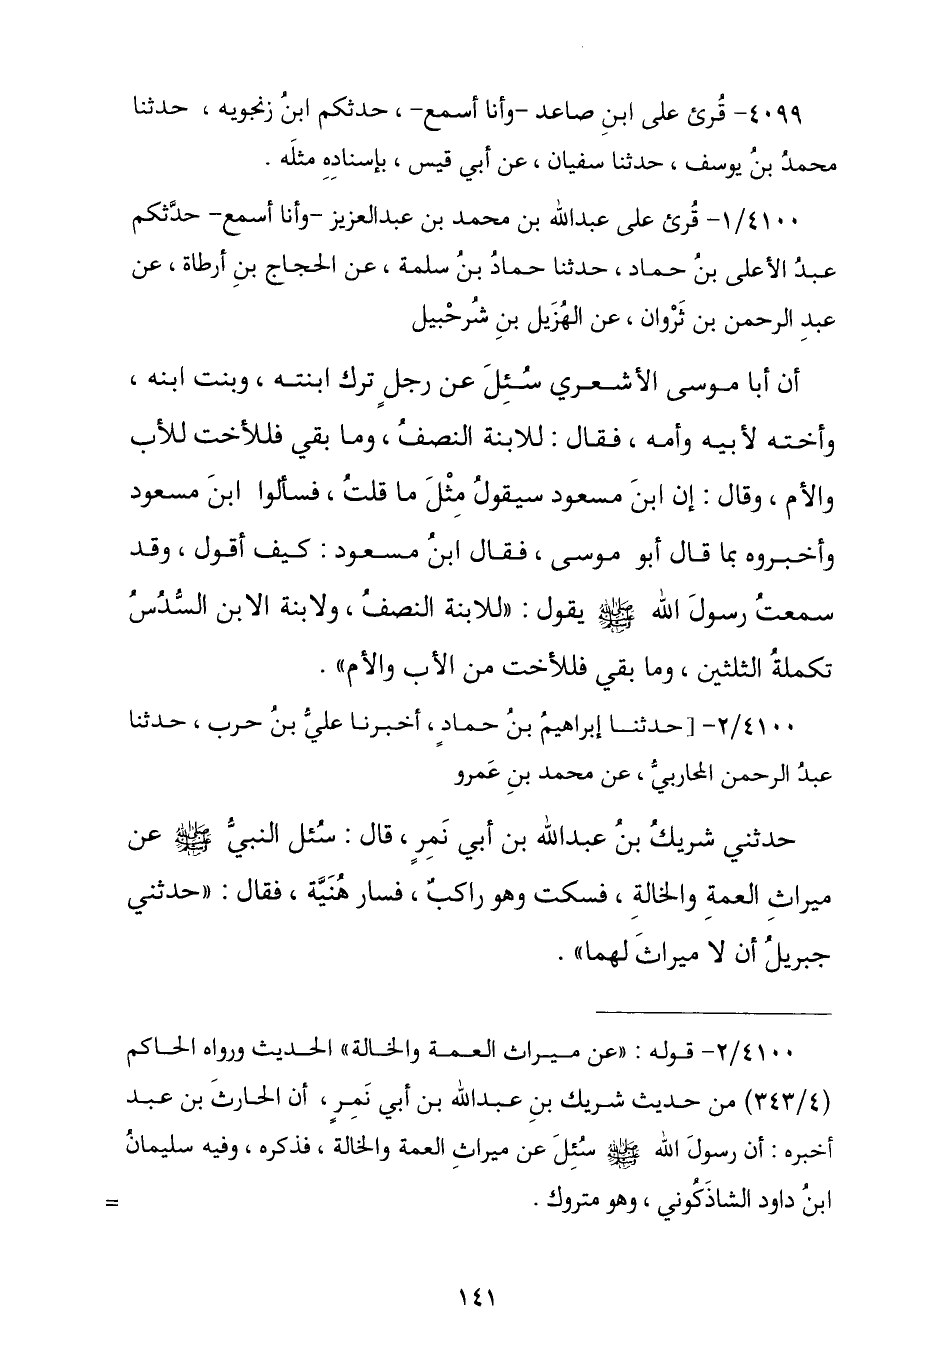 ٤٠٩٩- قُرئ على ابنِ صاعد -وأنا أسمع- ، حدثكم ابنُ زنجويه ، حدثنا
محمدُ بنُ يوسف ، حدثنا سفيان ، عن أبي قيس ، بإسنادِهِ مثلَه .
١/٤١٠٠- قُرئ على عبدالله بن محمد بن عبدالعزيز -وأنا أسمع- حدَّثكم
عبدُ الأعلى بنُ حماد ، حدثنا حمادُ بنُ سلمة ، عن الحجاج بنِ أرطاة ، عن
عبدِ الرحمن بن ثَرْوان ، عن الهُزَيل بنِ شُرحْبيل
أن أبا موسى الأشعري سُئِلَ عن رجلٍ ترك ابنته ، وبنت ابنه ،
وأخته لأبيه وأمه ، فقال : للابنة النصفُ ، وما بقي فللأخت للأب
والأم ، وقال : إن ابنَ مسعود سيقولُ مِثْلَ ما قلتُ ، فسألوا ابنَ مسعود
وأخبروه بما قال أبو موسى ، فقال ابنُ مسعود : كيف أقول ، وقد
سمعتُ رسولَ الله ﷺ يقول : «للابنة النصفُ ، ولابنة الابن السُّدُسُ
تكملةُ الثلثين ، وما بقي فللأخت من الأب والأم» .
٢/٤١٠٠- [حدثنا إبراهيمُ بنُ حمادٍ ، أخبرنا عليُّ بنُ حرب ، حدثنا
عبدُ الرحمن المحاربيُّ ، عن محمد بنِ عَمرو
حدثني شريكُ بنُ عبدالله بن أبي نَمِرٍ ، قال : سُئل النبيُّ ﷺ عن
ميراثِ العمةِ والخالةِ ، فسكت وهو راكبٌ ، فسار هُنَيَّة ، فقال : «حدثني
جبريلُ أن لا ميراثَ لهما» .
٢/٤١٠٠- قوله : «عن ميراث العمة والخالة» الحديث ورواه الحاكم
(٣٤٣/٤) من حديث شريك بنِ عبدالله بن أبي نَمِرٍ ، أن الحارثَ بن عبد
أخبره : أن رسولَ الله ﷺ سُئِلَ عن ميراثِ العمة والخالة ، فذكره ، وفيه سليمانُ
ابنُ داود الشاذَكُوني ، وهو متروك . =
١٤١